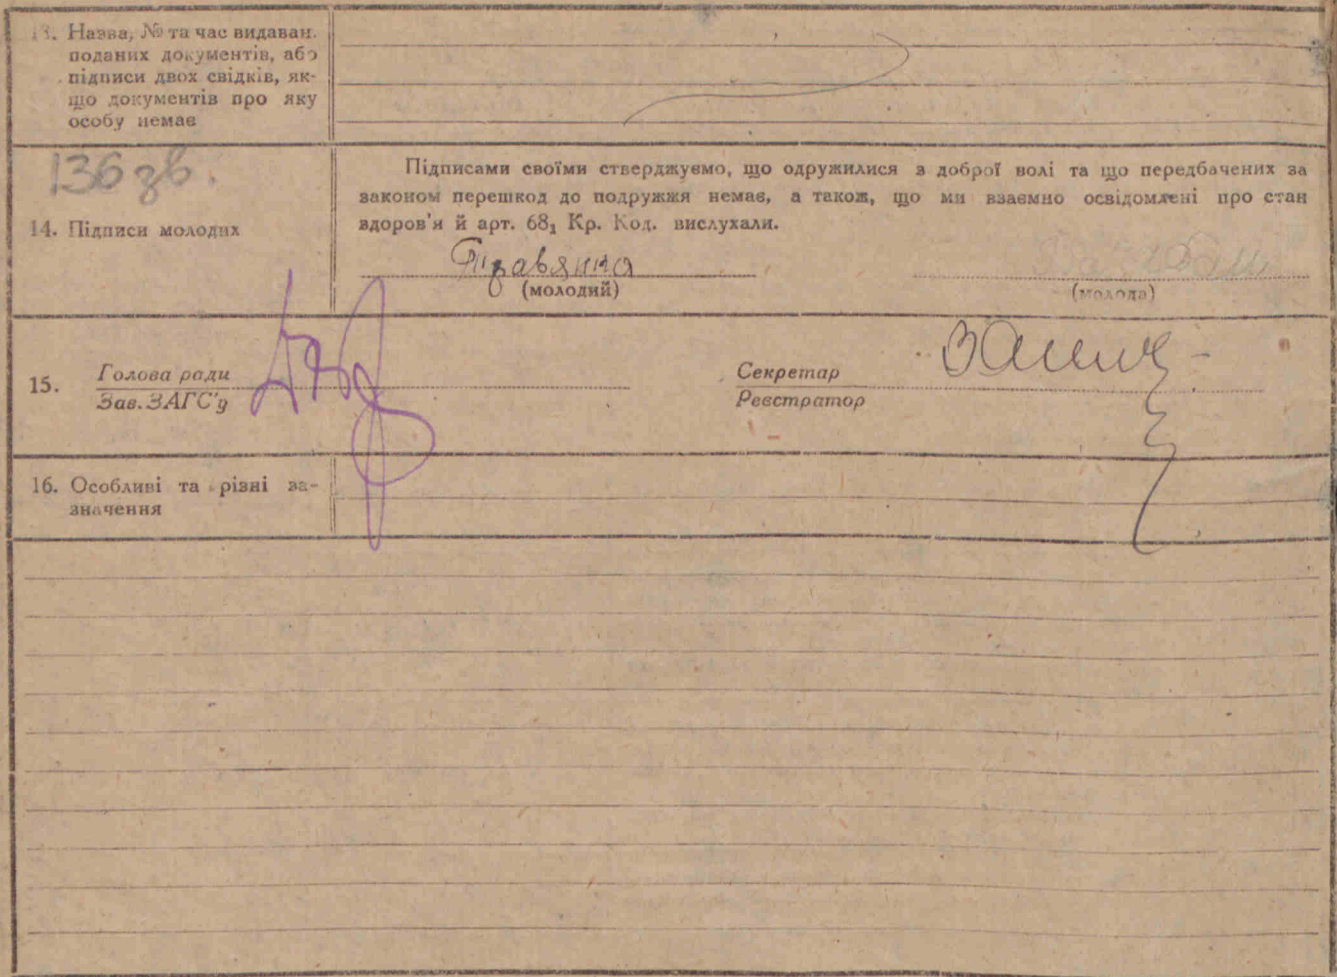 13. Назва, № та час видаван.
поданих документів, або
підписи двох свідків, як-
що документів про яку
особу немає
136 зв.
14. Підписи молодих
Підписами своїми стверджуємо, що одружилися з доброї волі та що передбачених за
законом перешкод до подружжя немає, а також, що ми взаємно освідомлені про стан
здоров'я й арт. 68₁ Кр. Код. вислухали.
(молодий)
(молода)
15.
Голова ради
Зав. ЗАГС'у
Секретар
Реєстратор
16. Особливі та різні за-
значення